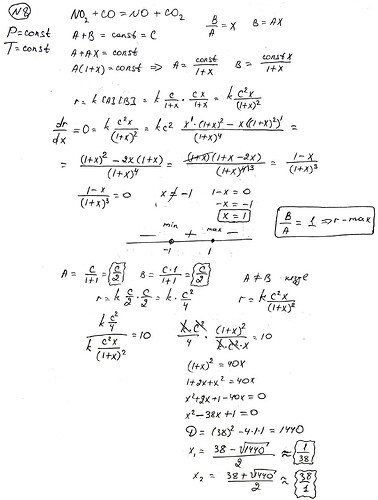 №8
NO₂ + CO = NO + CO₂
B/A = x B = AX
P = const
T = const
A + B = const = C
A + AX = const
A(1+x) = const ⇒ A = const/(1+x) B = const x/(1+x)
r = k[A][B] = k c/(1+x) · cx/(1+x) = k c²x/(1+x)²
dr/dx = 0 = k c²x/(1+x)² = kc² (x'·(1+x)² − x((1+x)²)')/(1+x)⁴ =
= ((1+x)² − 2x(1+x))/(1+x)⁴ = ((1+x)(1+x−2x))/(1+x)⁴³ = (1−x)/(1+x)³
(1−x)/(1+x)³ = 0 x ≠ −1 1−x = 0
−x = −1
x = 1
B/A = 1 ⇒ r − max
min max
− + −
−1 1
A = c/(1+1) = c/2 B = c·1/(1+1) = c/2 A ≠ B
r = k c/2 · c/2 = k · c²/4 r = k c²x/(1+x)²
(k c²/4)/(k c²x/(1+x)²) = 10 k·c²/4 · (1+x)²/(k·c²·x) = 10
(1+x)² = 40x
1+2x+x² = 40x
x²+2x+1−40x = 0
x²−38x+1 = 0
D = (38)² − 4·1·1 = 1440
x₁ = (38 − √1440)/2 ≈ 1/38
x₂ = (38 + √1440)/2 ≈ 38/1